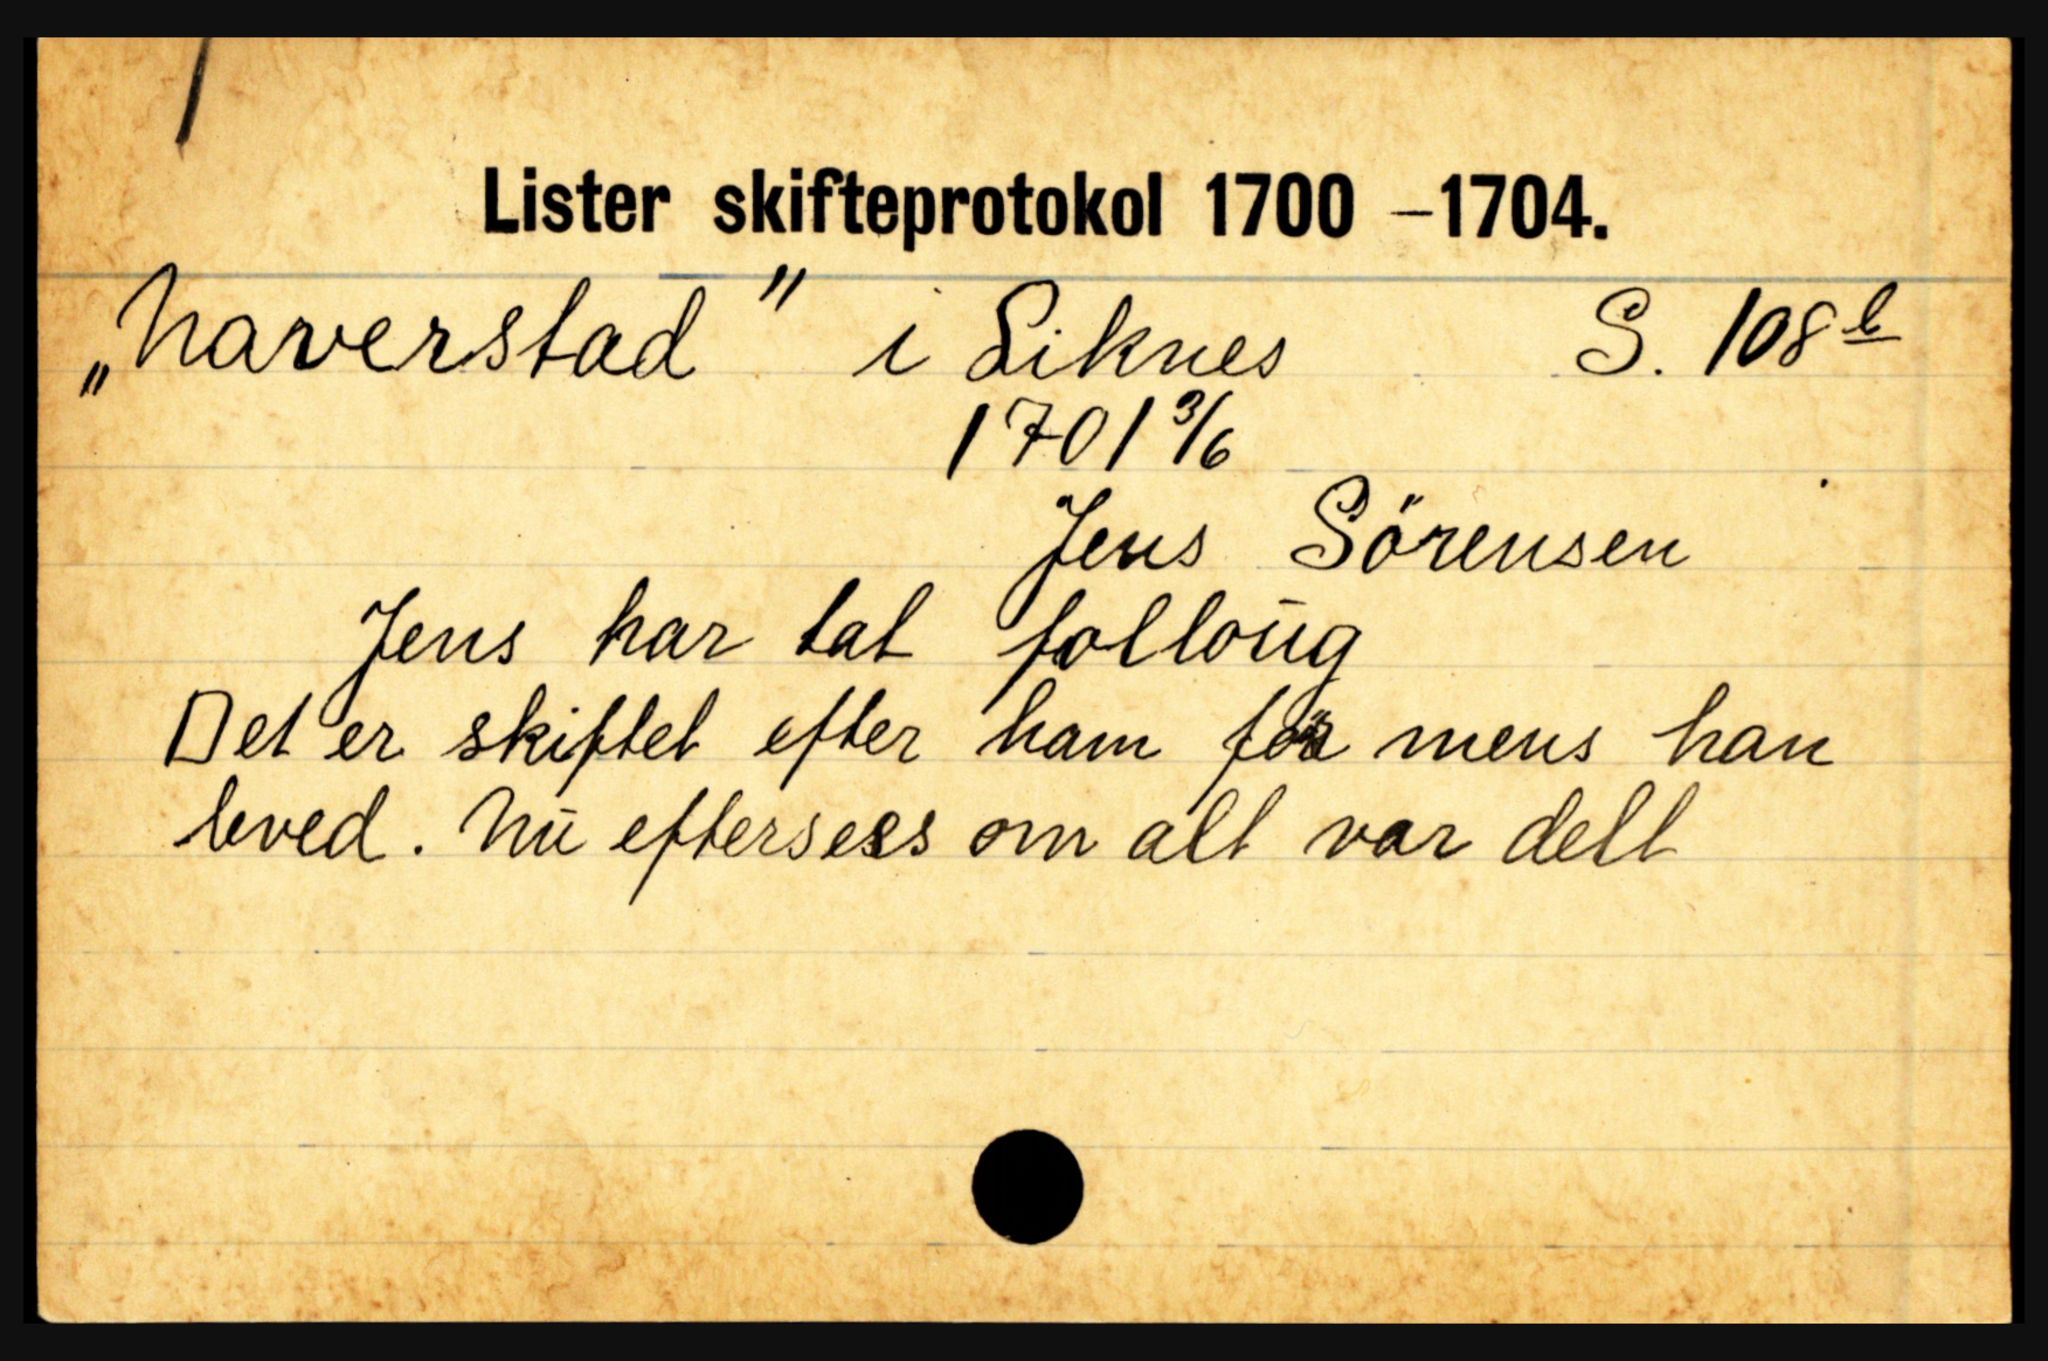 Lister skifteprotokol 1700 –1704.
„Naverstad" i Liknes S. 108 b
1701 3/6
Jens Sörensen
Jens har tat folloug
Det er skiftet efter ham för mens han
leved. Nu eftersees om alt var delt